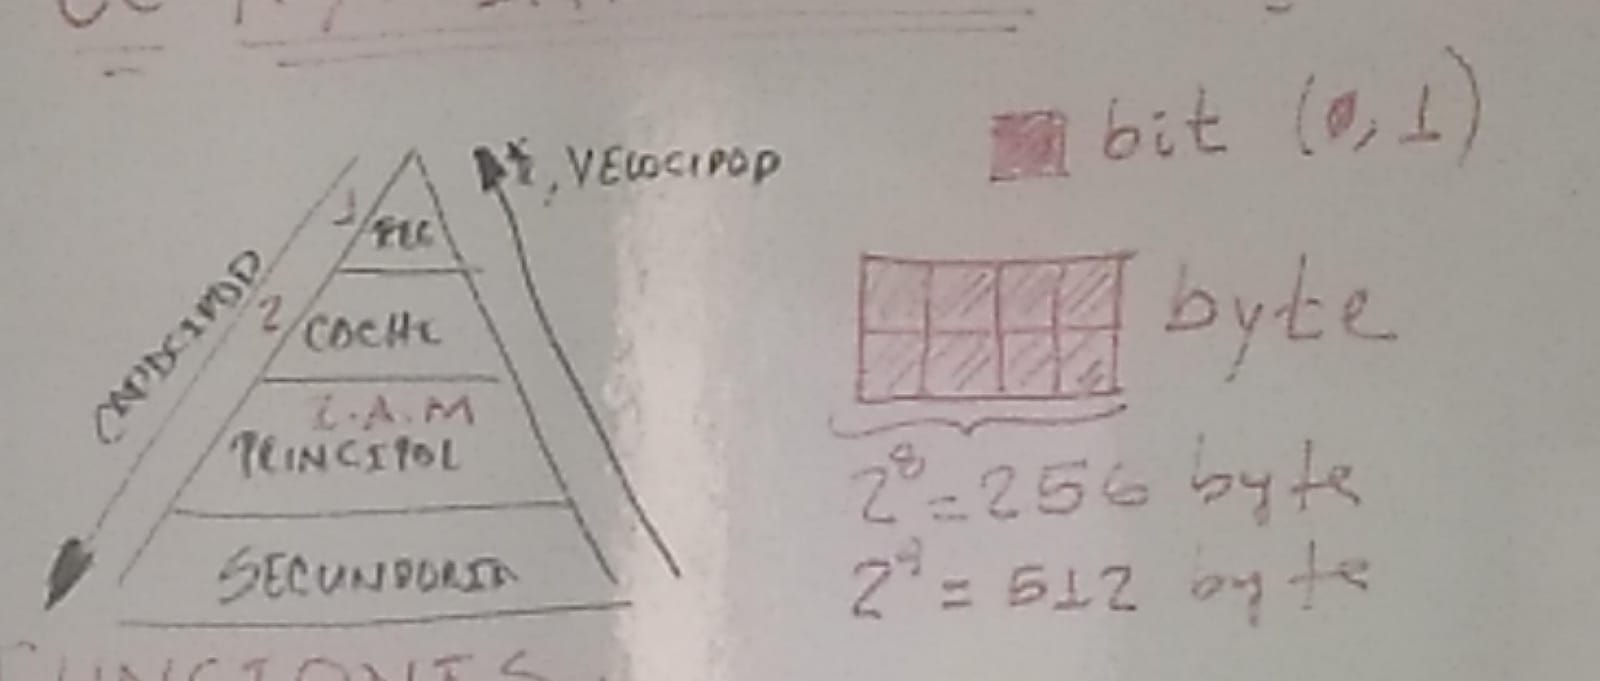 $, VELOCIDAD
1
REG
CAPACIDAD
2
CACHE
R.A.M
PRINCIPAL
SECUNDARIA
FUNCIONES
bit (0, 1)
byte
2^8 = 256 byte
2^9 = 512 byte